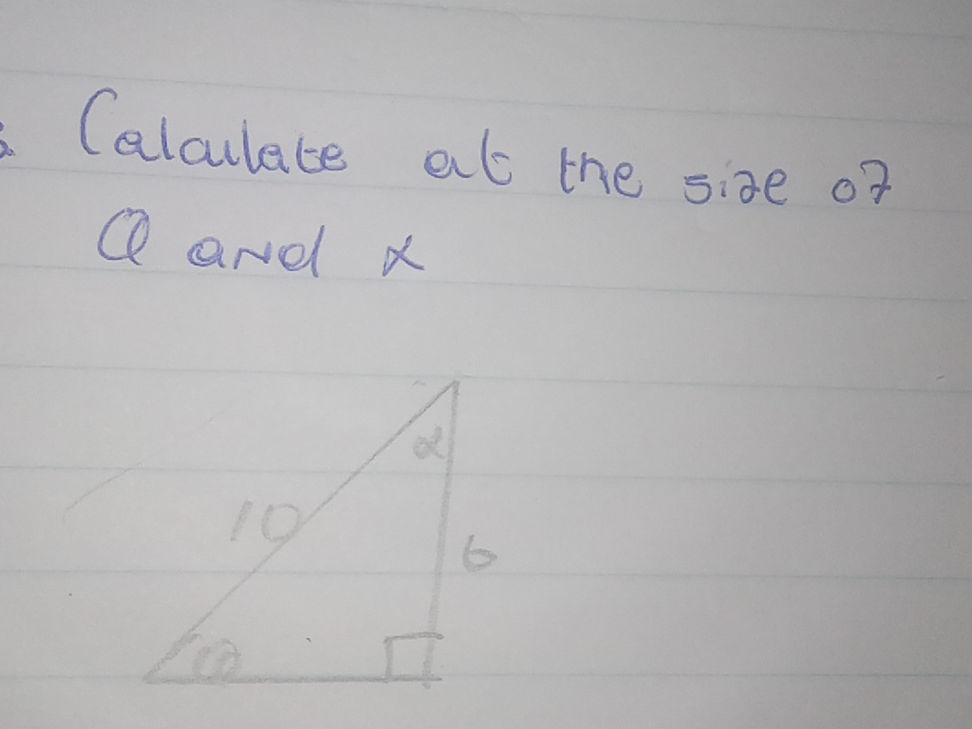 Calculate at the size of
θ and α
α
10
6
θ